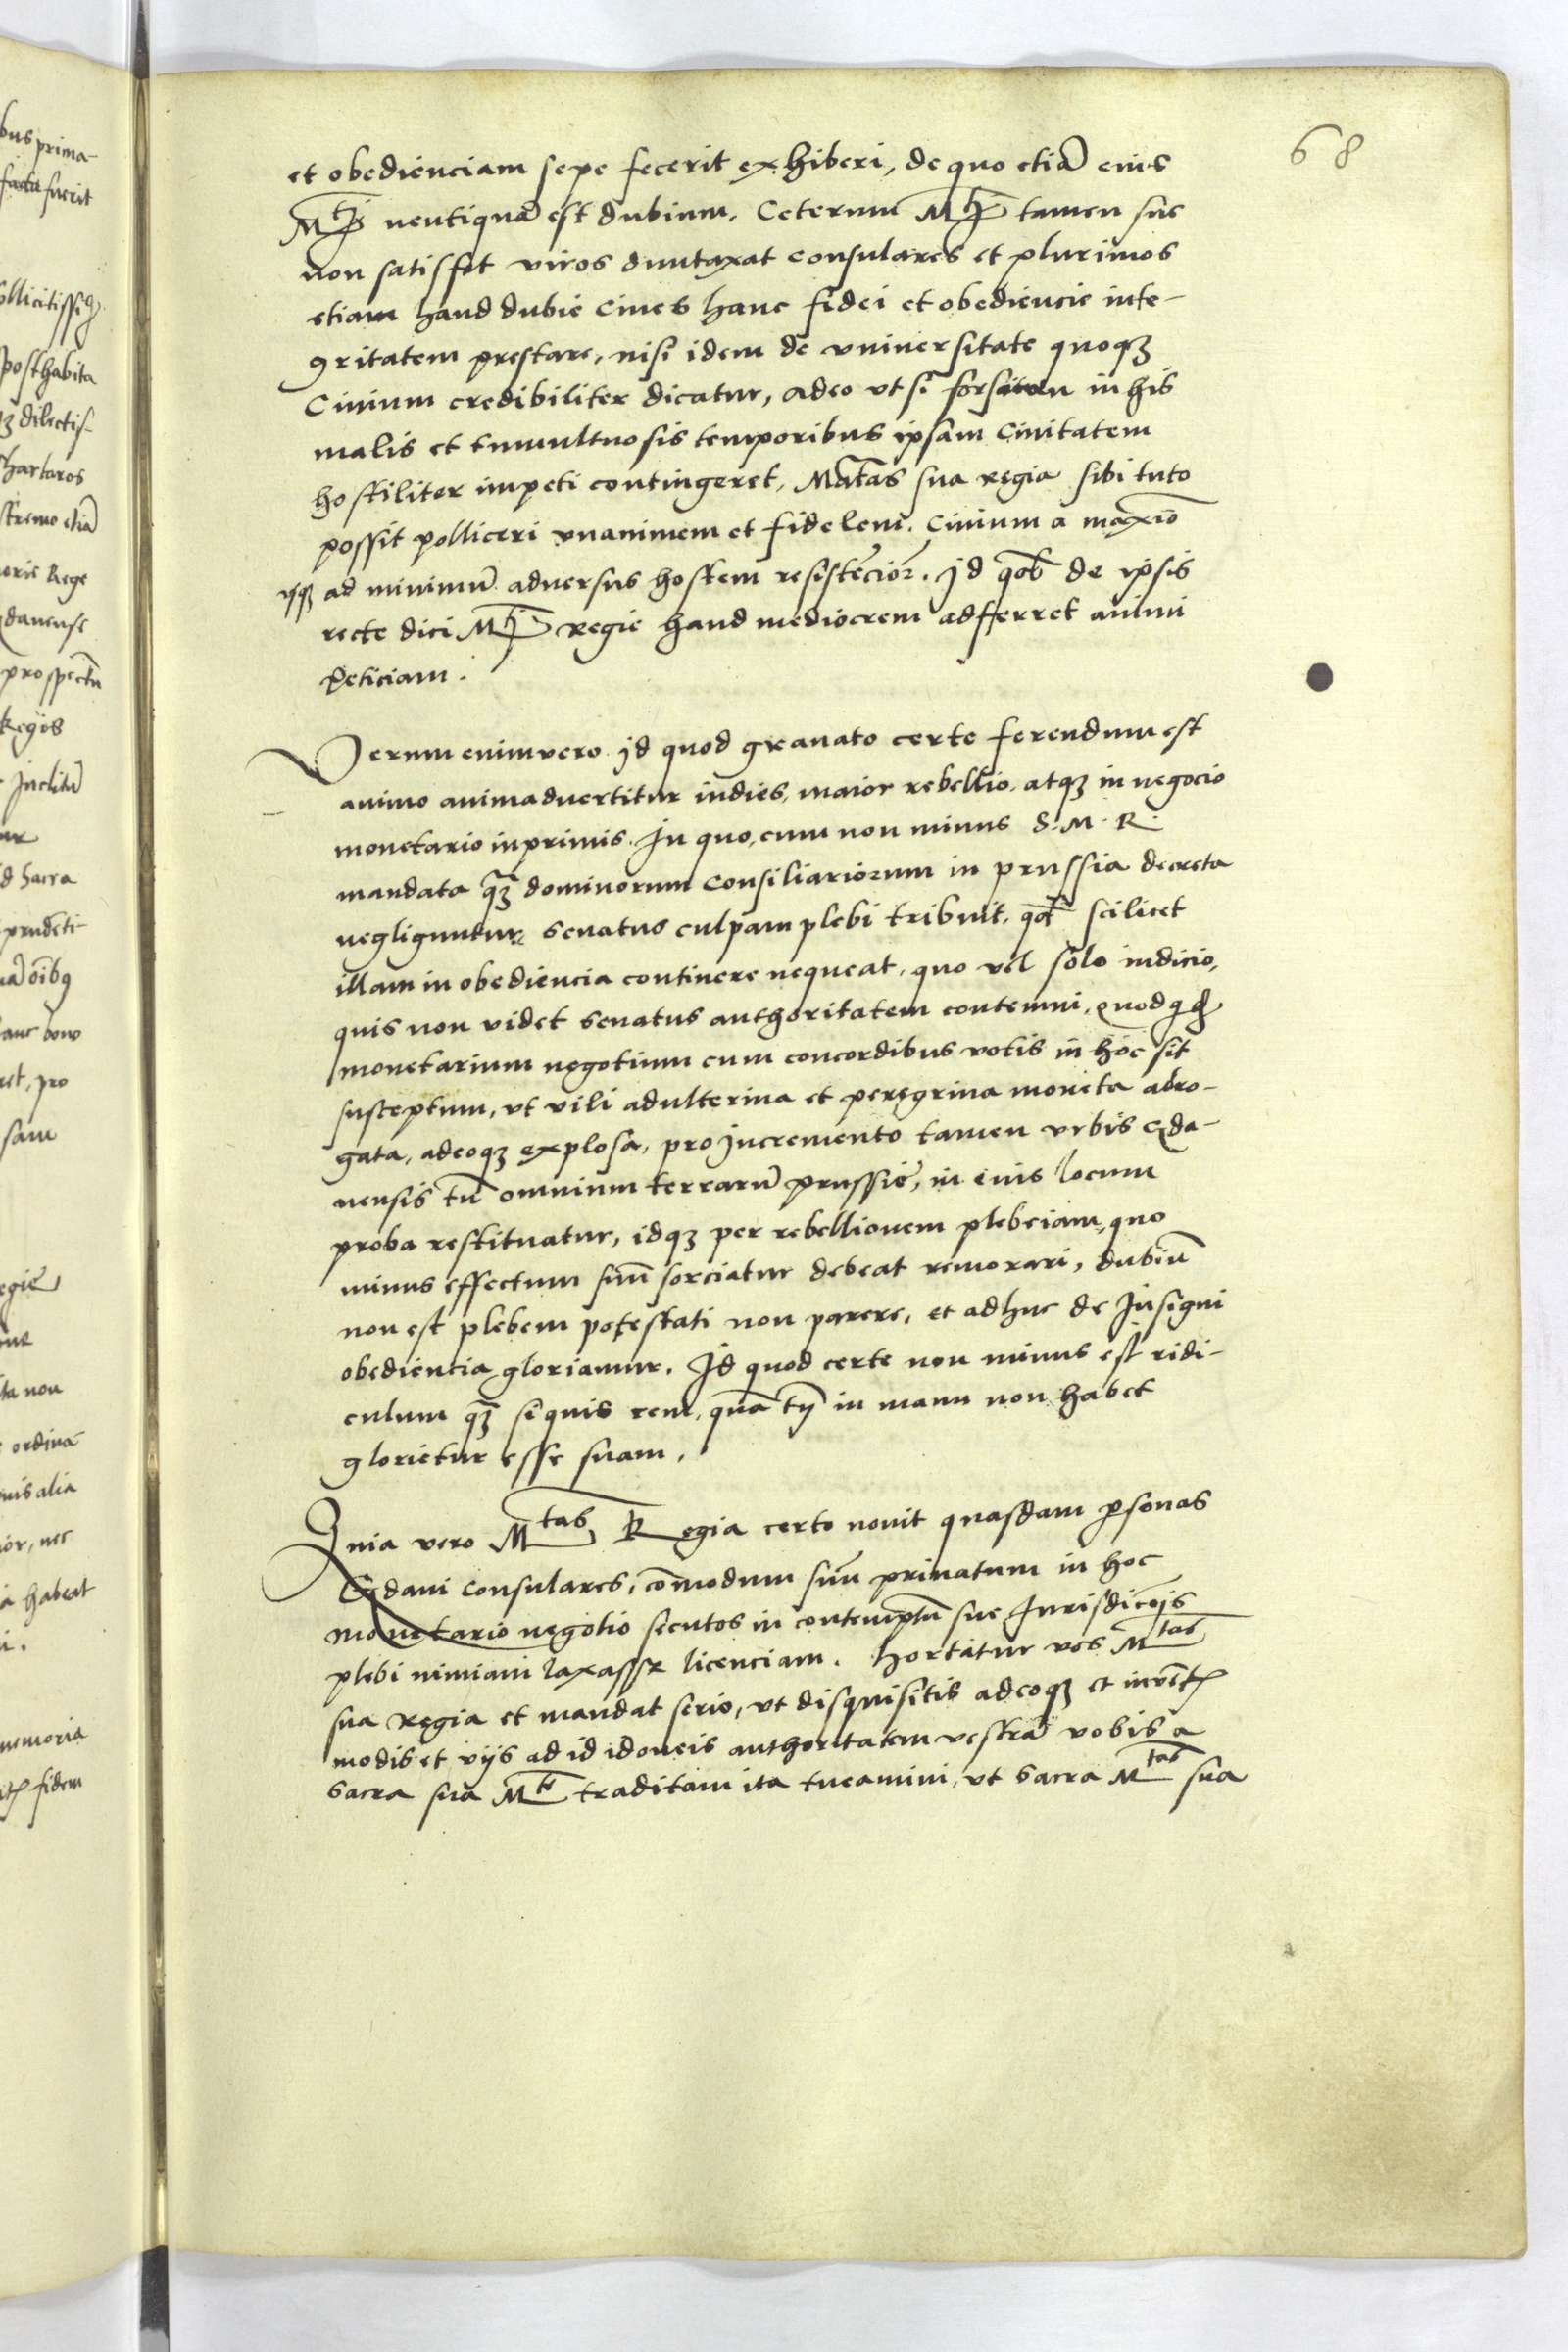 68
et obedienciam sepe fecerit exhiberi, de quo etiã eius
M^tj neutiquã est dubium. Ceterum M^tj tamen sue
non satisfit viros duntaxat consulares et plurimos
etiam haud dubie Ciues hanc fidei et obediencie inte-
gritatem prestare, nisi idem de vniuersitate quoqз
Ciuium credibiliter dicatur, adeo vt si forsitan in his
malis et tumultuosis temporibus ipsam Ciuitatem
hostiliter impeti contingeret, Mãtas sua regia sibi tuto
possit polliceri vnanimem et fidelem. Ciuium a maxĩo
vsqз ad minimũ aduersus hostem resistẽciõꝫ. Id qõd de ipsis
recte dici M^tj Regie haud mediocrem adfferret animi
leticiam.
Verum enimvero id quod grauato certe ferendum est
animo animaduertitur indies, maior rebellio, atqз in negocio
monetario inprimis. In quo, cum non minus S. M. R.
mandata q̃з dominorum Consiliariorum in prussia decreta
negliguntur, senatus culpam plebi tribuit, qõd scilicet
illam in obediencia continere nequeat, quo vel solo indicio,
quis non videt senatus authoritatem contemni, Quod
monetarium negotium cum concordibus votis in hoc sit
susceptum, vt vili adulterina et peregrina moneta abro-
gata, adeoqз explosa, pro incremento tamen vrbis Gda-
nensis tũ omnium terrarũ prussie, in eius locum
proba restituatur, idqз per rebellionem plebeiam, quo
minus effectum suũ sorciatur debeat remorari, dubiũ
non est plebem potestati non parere, et adhuc de Insigni
obediencia gloriamur. Id quod certe non minus est ridi-
culum q̃з si quis rem, quã in manu non habet
glorietur esse suam.
Quia vero M^tas Regia certo nouit quasdam ꝑsonas
Gedani Consulares, cõmodum suũ priuatum in hoc
monetario negotio secutos in contemptũ sue Jurisdicõis
plebi nimiam laxasse licenciam. Hortatur vos M^tas
sua Regia et mandat serio, vt disquisitis adeoqз et inuẽt
modis et vijs ad id idoneis authoritatem vestrã vobis a
Sacra sua M^te traditam ita tueamini, vt Sacra M^tas sua